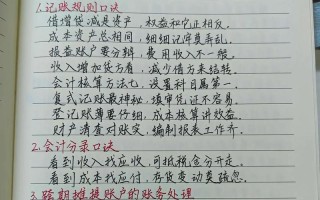 1.记账规则口诀
借增贷减是资产,权益和它正相反。
成本资产总相同,细细记牢莫弄乱。
损益账户要分辨,费用收入不一般。
收入增加贷方看,减少借方来结转。
会计核算方法七,设置科目属第一。
复式记账最神秘,填审凭证不容易。
登记账簿要仔细,成本核算讲效益。
财产清查对账实,编制报表工作齐。
2.会计分录口诀
看到收入找应收,可抵税金分开走。
看到成本找应付,存货变动莫疏忽。
3.跨期摊提账户的账务处理